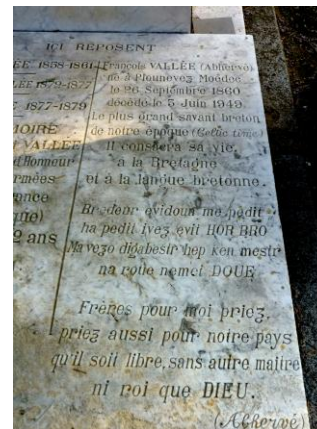 ICI REPOSENT
ÉE 1858-1861
LLÉE 1879-1877
1877-1879
MOIRE
VALLÉE
d'Honneur
rmées
ance
que)
2 ans
François VALLÉE (Abhervé)
né à Plounevez Moëdec
le 26 Septembre 1860
décédé le 5 Juin 1949
Le plus grand savant breton
de notre époque (Celtic time)
Il consacra sa vie,
à la Bretagne
et à la langue bretonne.
Breudeur evidoun me pedit
ha pedit ivez evit HOR BRO
Ma vezo digabestr hep ken mestr
na roue nemet DOUE
Frères pour moi priez,
priez aussi pour notre pays
qu'il soit libre, sans autre maître
ni roi que DIEU.
(Abhervé)